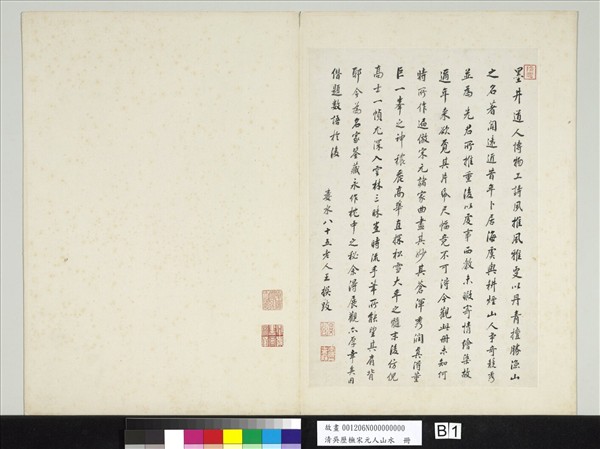 墨井道人博物工詩風推風雅更以丹青擅勝漁山
之名著聞遠近昔年卜居海虞與耕煙山人爭奇競秀
並為先君所推重後以處事西教未暇寄情繪染故
邇年來欲覓其片紙尺幅竟不可得今觀此冊未知何
時所作追倣宋元諸家曲盡其妙其蒼渾秀潤真得董
巨一峯之神穠麗高華直探松雪大年之髓末後仿倪
高士一幀尤深入雲林三昧豈時流手筆所能望其肩背
耶今為名家鑒藏永作枕中之秘余得展觀亦厚幸矣因
借題數語於後
婁水八十五老人王撰跋
故畫 001206N000000000
清吳歷橅宋元人山水 冊
B 1